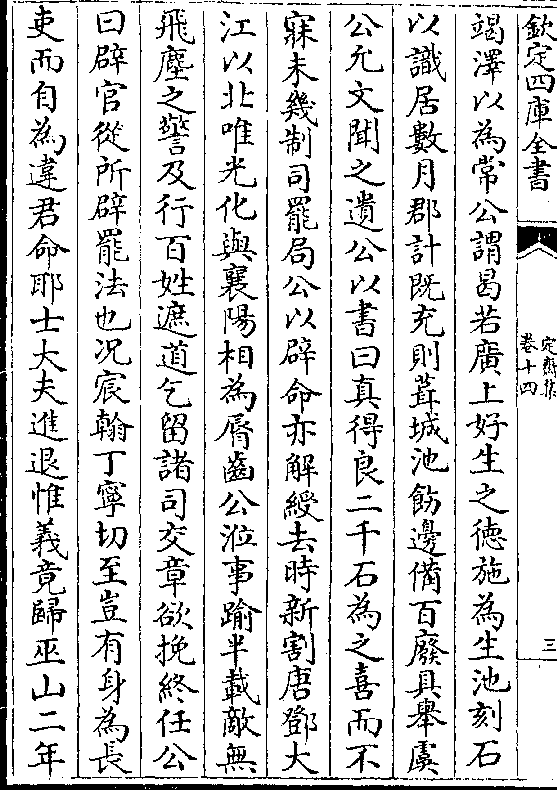 欽定四庫全書
定齋集
卷十四
三
竭澤以為常公謂曷若廣上好生之徳施為生池刻石
以識居數月郡計既充則葺城池飭邊備百廢具舉虞
公允文聞之遺公以書曰真得良二千石為之喜而不
寐未幾制司罷局公以辟命亦解綬去時新割唐鄧大
江以北唯光化與襄陽相為脣齒公涖事踰半載敵無
飛塵之警及行百姓遮道乞留諸司交章欲挽終任公
曰辟官從所辟罷法也况宸翰丁寧切至豈有身為長
吏而自為違君命耶士大夫進退惟義竟歸巫山二年